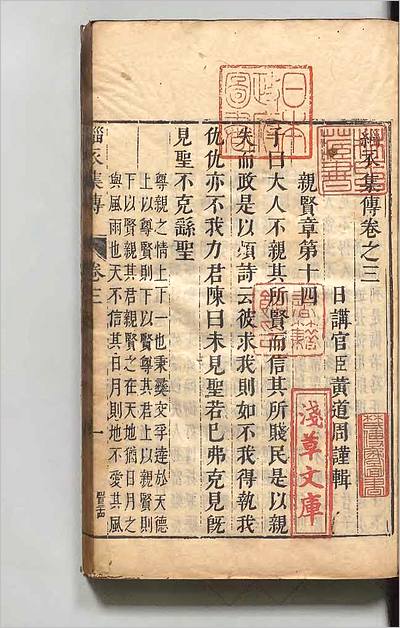 緇衣集傳卷之三
日講官臣黃道周謹輯
親賢章第十四
子曰大人不親其所賢而信其所賤民是以親
失而政是以煩詩云彼求我則如不我得執我
仇仇亦不我力君陳曰未見聖若己弗克見旣
見聖不克繇聖
尊親之情上下一也秉彜交孚達於天德
上以尊賢則下以賢尊其君上以親賢則
下以賢親其君親賢之在天地猶日月之
與風雨也天不信其日月則地不愛其風
緇衣集傳
卷三
一
日本
圖書
淺草文庫